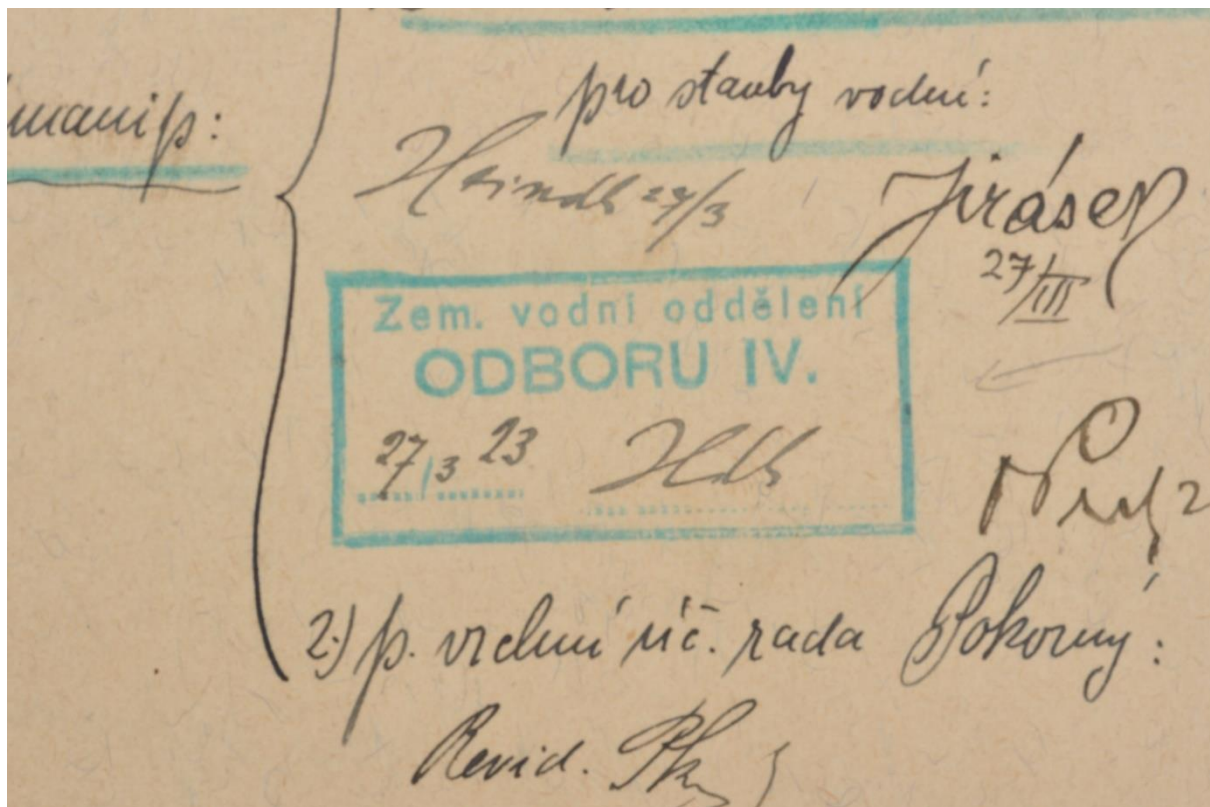 pro stavby vodní:
manip:
Heindl 27/3
Jirásek
27/III
Zem. vodní oddělení
ODBORU IV.
27/3 23
2.) p. vrchní úč. rada Pokorný:
Revid.